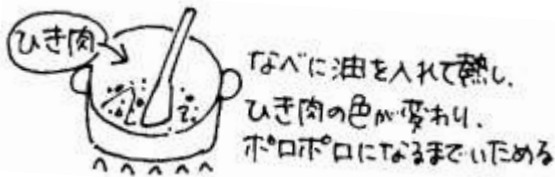 ひき肉
なべに油を入れて熱し、
ひき肉の色が変わり、
ポロポロになるまでいためる